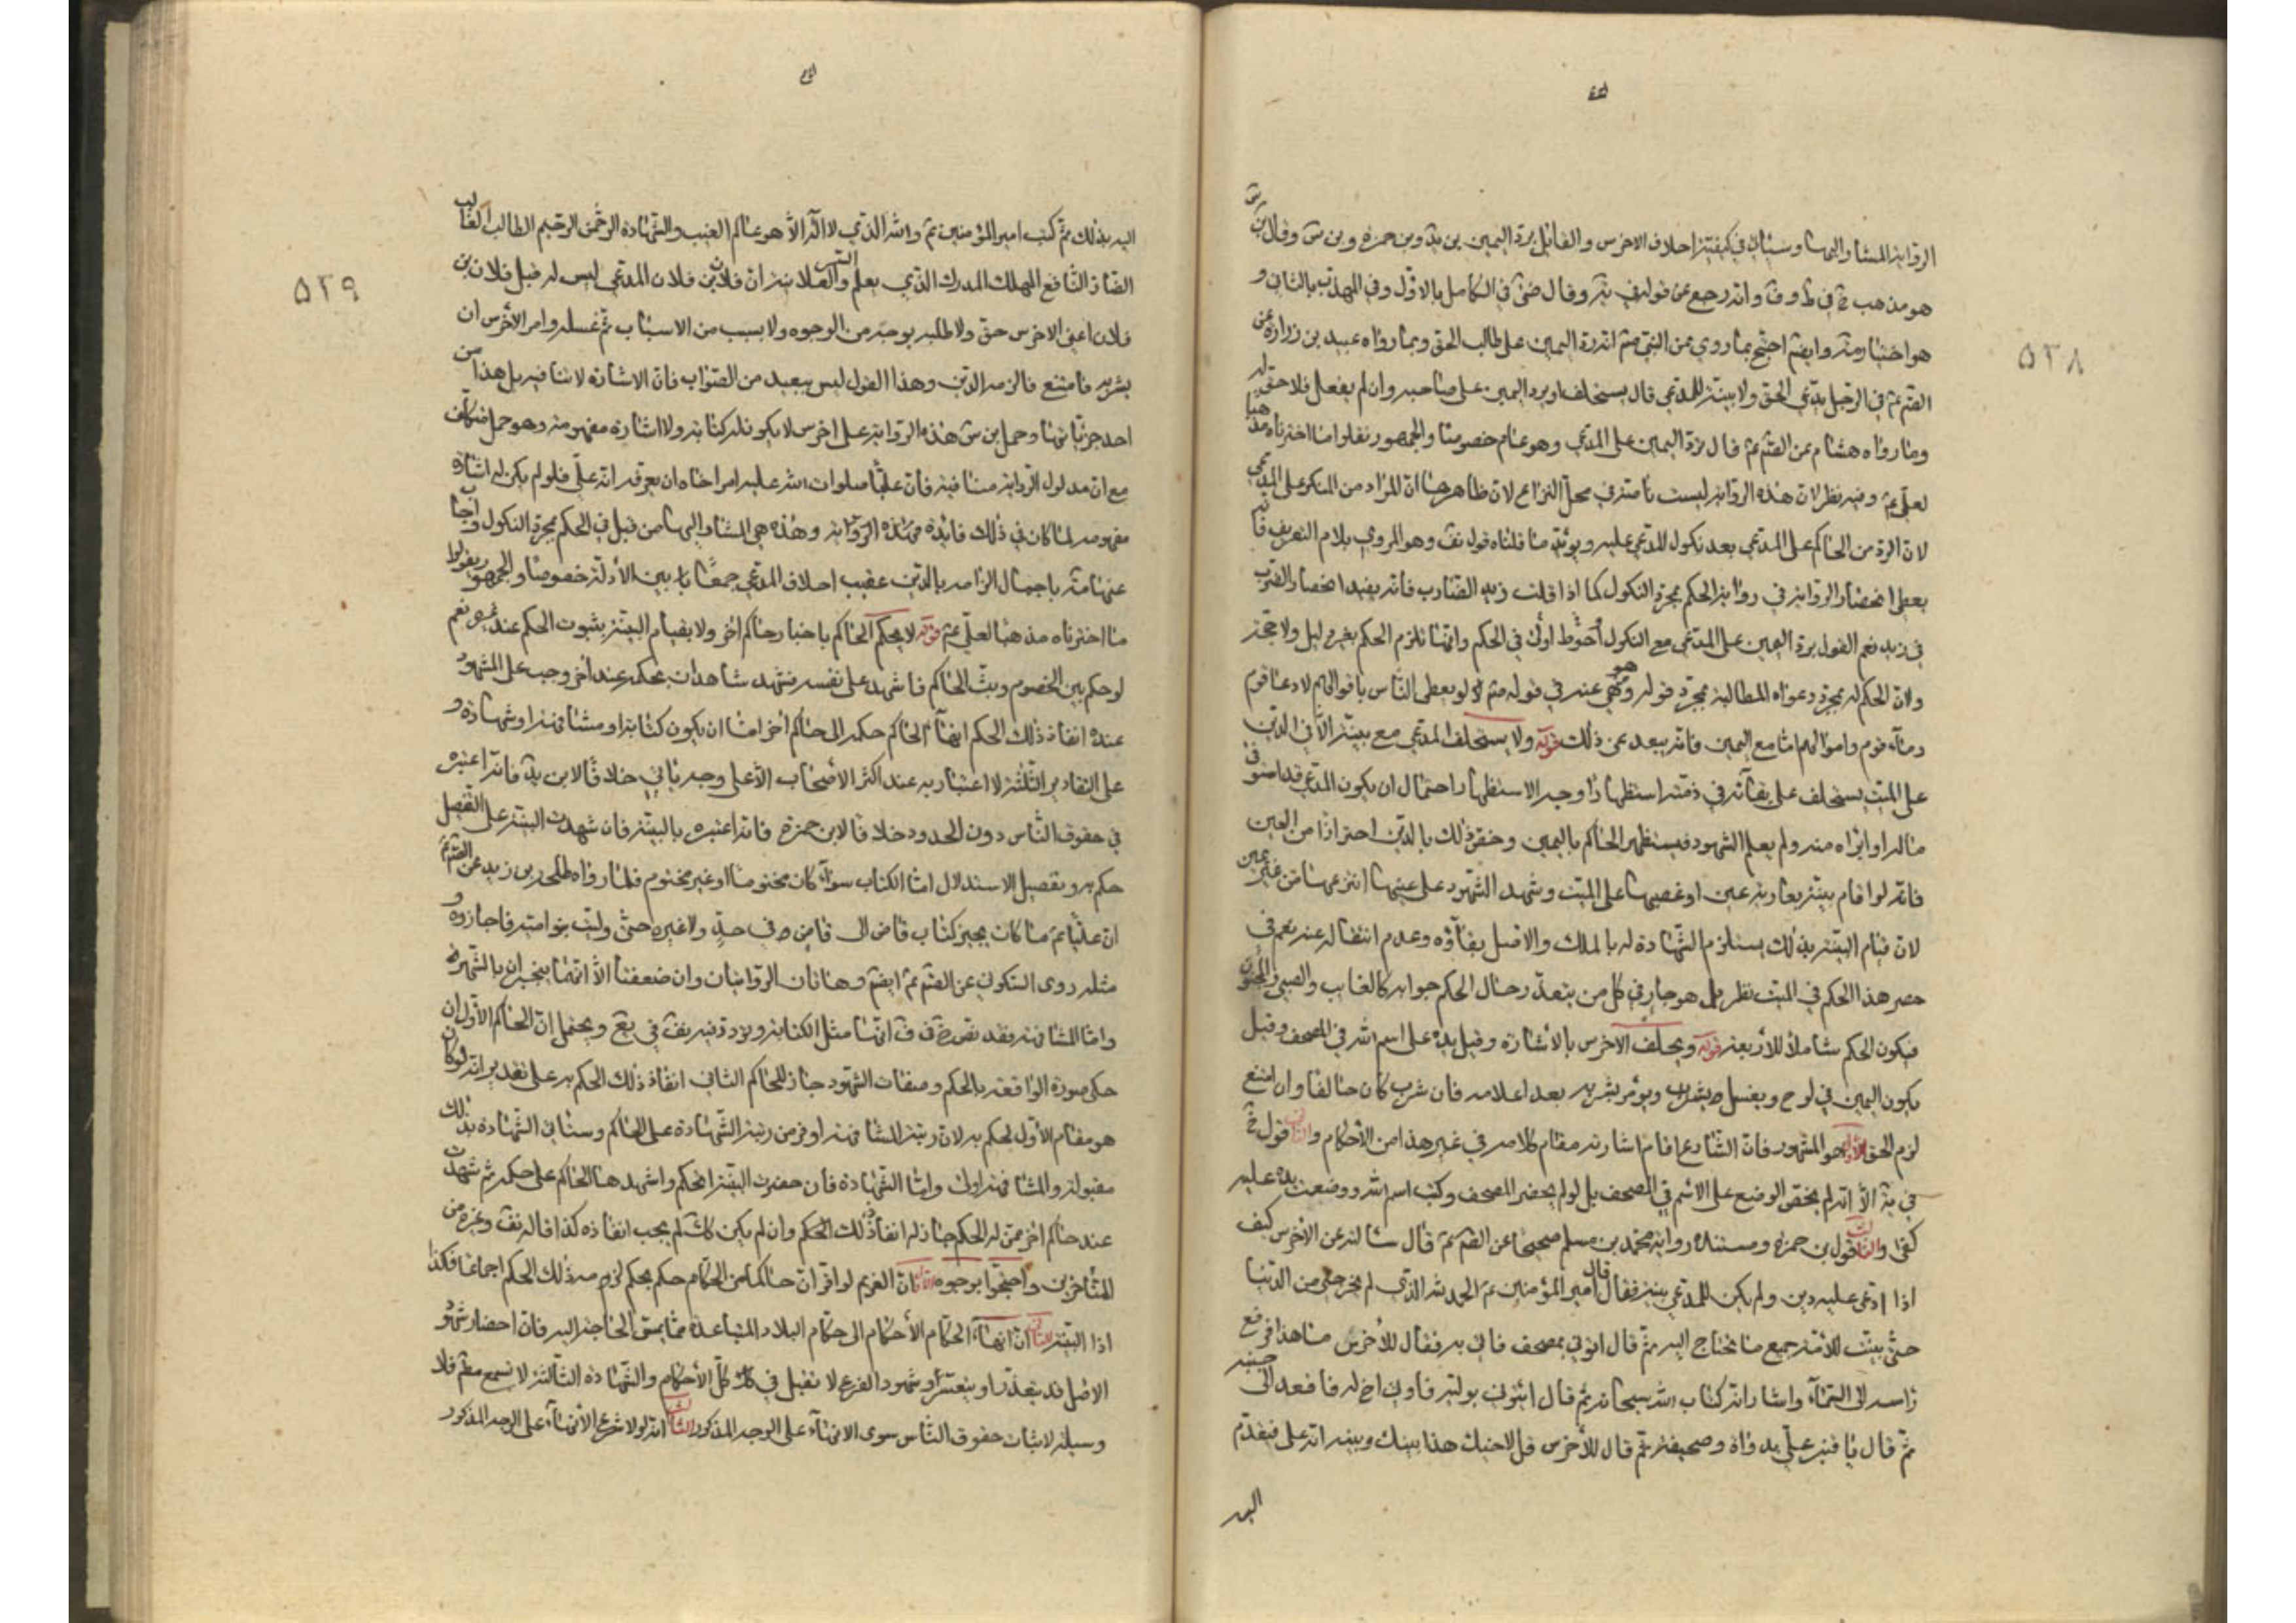 ٥٢٨
الرواية المشار اليها وسياتي في كيفية احلاف الاخرس والقايل برد اليمين بن يد وبن حمزه وبن س وقال بن
هو مذهب في ط وف وانه رجع عن قوله في ية وقال في الكامل بالاول وفي المهذب بالثاني و
هو اختيار وايضم احتج بما روي عن النبي صم انه رد اليمين على طالب الحق وبما رواه عبيد بن زرارة عن
الصم عم في الرجل يدعى الحق ولا بينة للمدعي قال يستحلف او يرد اليمين على صاحبه وان لم يفعل فلا حق له
وما رواه هشام عن الصم عم قال يرد اليمين على المدعي وهو عام خصوصا والجمهور نقلوا ما اخترناه مذهبا
لعلي عم وفيه نظر لان هذه الرواية ليست ناصة في محل النزاع لان ظاهرها ان المراد من المنكر على المدعي
لان الرد من الحاكم على المدعي بعد نكول المدعي عليه ويؤيد ما قلناه قول نف وهو المروي بلام التعريف فانه
يعطى انحصار الرواية في رواية الحكم بمجرد النكول كما اذا قلت زيد الضارب فانه يفيد انحصار الضرب
في زيد نعم القول برد اليمين على المدعي مع النكول احوط اولى في الحكم وانما نلزم الحكم بغير دليل ولا حجة
ولان الحكم له بمجرد دعواه المطالبة بمجرد قوله وهو منهي عنه في قوله صم لو يعطى الناس باقوالهم لادعا قوم
دماء قوم واموالهم اما مع اليمين فانه يبعد عن ذلك قوله ولا يستحلف المدعي مع بينة الا في الدين
على الميت يستحلف على بقائه في ذمته استظهارا وجه الاستظهار احتمال ان يكون المدعي قد استوفى
ماله او ابراه منه ولم يعلم الشهود فيستظهر الحاكم باليمين وخص ذلك بالدين احترازا من العين
فانه لو اقام بينة بعارية عين او غصبها على الميت وشهد الشهود على عينها انتزعها من غير يمين
لان قيام البينة بذلك يستلزم الشهادة له بالملك والاصل بقاؤه وعدم انتقاله عنه نعم في
حصر هذا الحكم في الميت نظر بل هو جار في كل من يتعذر حال الحكم جوابه كالغايب والصبي والمجنون
فيكون الحكم شاملا للاربعة قوله ويحلف الاخرس بالاشارة وقيل يده على اسم الله في المصحف وقيل
يكون اليمين في لوح ويغسل ويؤمر بشربه بعد اعلامه فان شرب كان حالفا وان امتنع
لزم الحق الاول هو المشهور فان الشارع اقام اشارته مقام كلامه في غير هذا من الاحكام والثاني قول خ
في ية الا انه لم يخص الوضع على الاسم في المصحف بل لو لم يحضر المصحف وكتب اسم الله ووضعت يده عليه
كفى والثالث قول بن حمزه ومستنده رواية محمد بن مسلم صحيحا عن الصم عم قال سالته عن الاخرس كيف
اذا ادعى عليه دين ولم يكن للمدعي بينة فقال قال امير المؤمنين عم الحمد لله الذي لم يخرجني من الدنيا
حتى بينت للامة جميع ما تحتاج اليه ثم قال ائتوني بمصحف فاتي به فقال للاخرس ما هذا فرفع
راسه الى السماء واشار انه كتاب الله سبحانه ثم قال ائتوني بوليه فاوتي اخ له فاقعد الى جنبه
ثم قال يا قنبر علي بدواة وصحيفة ثم قال للاخرس قل لاخيك هذا بينك وبينه انه على فتقدم
اليه
٥٢٩
اليه بذلك ثم كتب امير المؤمنين عم والله الذي لا اله الا هو عالم الغيب والشهادة الرحمن الرحيم الطالب الغالب
الضار النافع المهلك المدرك الذي يعلم السر والعلانية ان فلان بن فلان المدعي ليس له قبل فلان بن
فلان اعني الاخرس حق ولا طلبه بوجه من الوجوه ولا بسبب من الاسباب ثم غسله وامر الاخرس ان
يشربه فامتنع فالزمه الدين وهذا القول ليس ببعيد من الصواب فان الاشارة لا تنافيه بل هذا من
احد جزئياتها وحمل بن س هذه الرواية على اخرس لا يكون له كتابة ولا اشارة مفهومة وهو حمل متكلف
مع ان مدلول الرواية منافية فان عليا صلوات الله عليه امر اخاه ان يعرفه انه علي فلو لم يكن له اشارة
مفهومه لما كان في ذلك فايدة هذه الرواية وهذه هي المشار اليها من قبل في الحكم بمجرد النكول واجاب
عنها باحتمال الزامه بالدين عقيب احلاف المدعي جمعا بين الادلة خصوصا والجمهور نقلوا
ما اخترناه مذهبا لعلي عم قوله لا يحكم الحاكم باخبار حاكم اخر ولا بقيام البينة بثبوت الحكم عند غيره نعم
لو حكم بين الخصوم وبث الحاكم فاشهد على نفسه فشهد شاهدان بحكمه عند اخر وجب على المشهود
عنده انفاذ ذلك الحكم انهاء الحاكم حكمه الى حاكم اخر اما ان يكون كتابة او مشافهة او شهادة و
على التقادير الثلثة لا اعتبار به عند اكثر الاصحاب الا على وجه ياتي خلافا لابن يد فانه اعتبره
في حقوق الناس دون الحدود خلافا لابن حمزة فانه اعتبره بالبينة فان شهدت البينة على التفصيل
حكم به وتفصيل الاستدلال اما الكتاب سواء كان مختوما او غير مختوم فلما رواه طلحة بن زيد عن الصم عم
ان عليا عم ما كان يجيز كتاب قاض الى قاض في حد ولا غيره حتى وليت بنو امية فاجازوه و
مثله روى السكوني عن الصم عم ايضم وهاتان الروايتان وان ضعفتا الا انهما ينجبران بالشهرة
واما المشافهة فقد نص خ في ف انها مثل الكتابة وتردد فيه يف في يع ويحتمل ان الحاكم الاول ان
حكى صورة الواقعة بالحكم وصفات الشهود جاز للحاكم الثاني انفاذ ذلك الحكم به على تقدير انه لو كان
هو مقام الاول لحكم به لان رتبة المشافهة اوفر من رتبة الشهادة على الحاكم وسياتي الشهادة بذلك
مقبولة والمشافهة اولى واما الشهادة فان حضرت البينة الحكم واشهدها الحاكم على حكمه ثم شهدت
عند حاكم اخر ممن له الحكم جاز له انفاذ ذلك الحكم وان لم يكن كك لم يجب انفاذه كذا قاله نف وغيره من
المتاخرين واحتجوا بوجوه الاول ان الغريم لو اقر ان حاكما من الحكام حكم بحكم لزمه ذلك الحكم اجماعا فكذا
اذا البينة الثاني ان انهاء الحكام الاحكام الى حكام البلاد المتباعدة مما يمس الحاجة اليه فان احضار شهود
الاصل قد يتعذر او يتعسر او شهود الفرع لا تقبل في كل الاحكام والشهادة الثالثة لا تسمع معهم فلا
وسيلة لاثبات حقوق الناس سوى الانهاء على الوجه المذكور الثالث انه لولا شرع الانهاء على الوجه المذكور